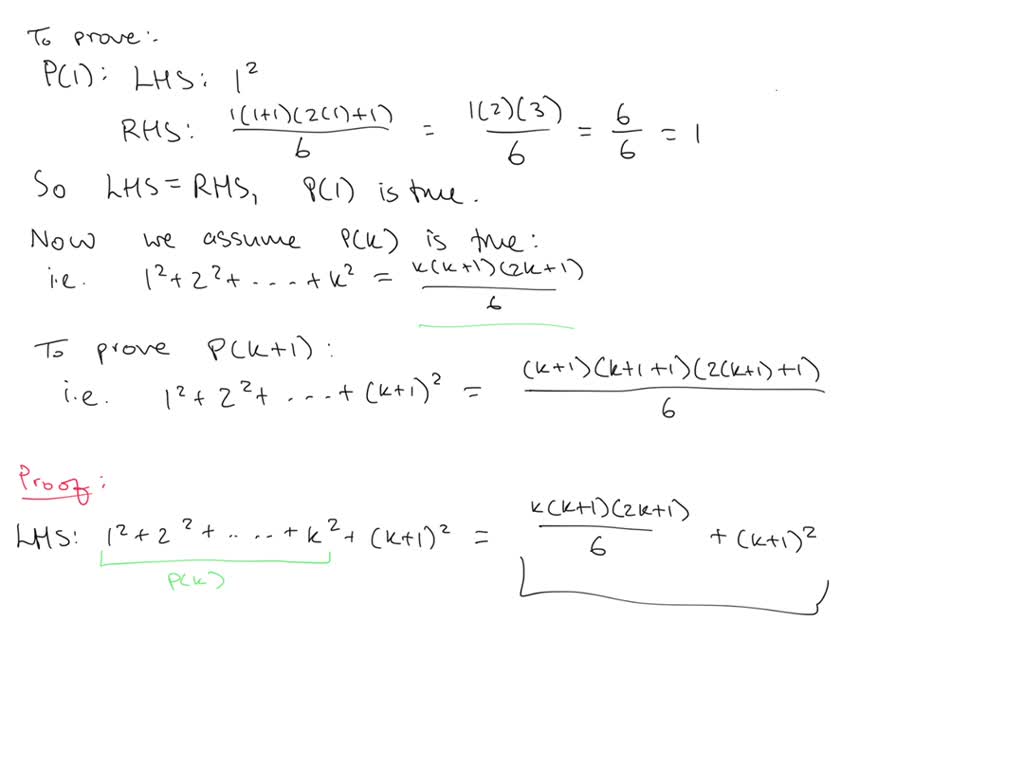 To prove:-
P(1): LHS: 1²
RHS: 1(1+1)(2(1)+1)/6 = 1(2)(3)/6 = 6/6 = 1
So LHS = RHS, P(1) is true.
Now we assume P(k) is true:
i.e. 1² + 2² + .... + k² = k(k+1)(2k+1)/6
To prove P(k+1):
i.e. 1² + 2² + .... + (k+1)² = (k+1)(k+1+1)(2(k+1)+1)/6
Proof:
LHS: 1² + 2² + .... + k² + (k+1)² = k(k+1)(2k+1)/6 + (k+1)²
P(k)